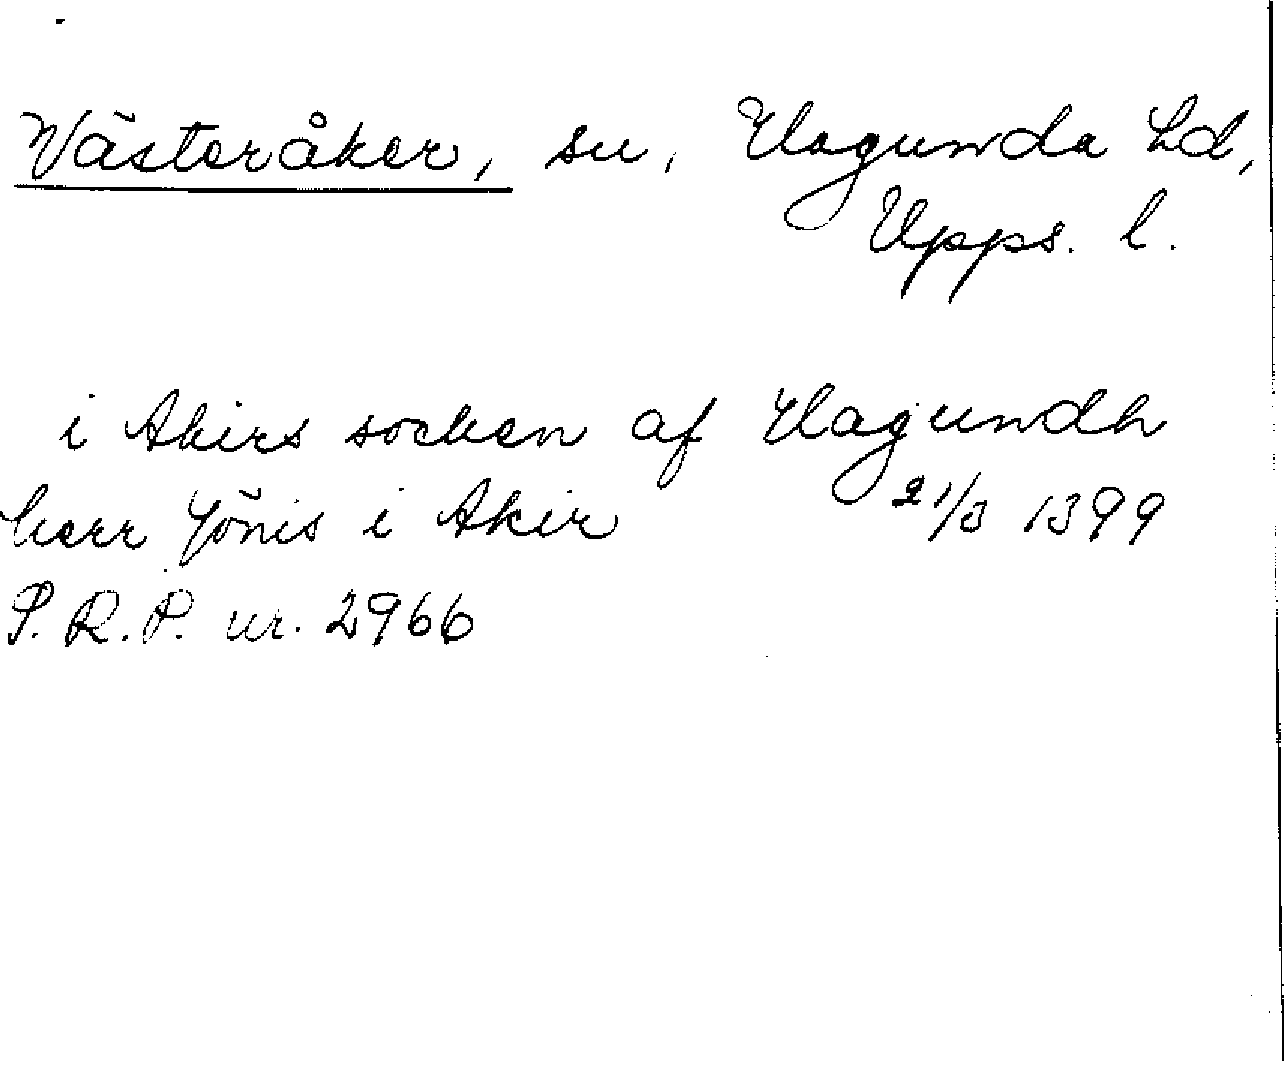 Västeråker, sn, Hagunda hd,
Upps. l.
i Akirs socken af Hagundh
herr Jönis i Akir 21/3 1399
S. R. P. nr. 2966